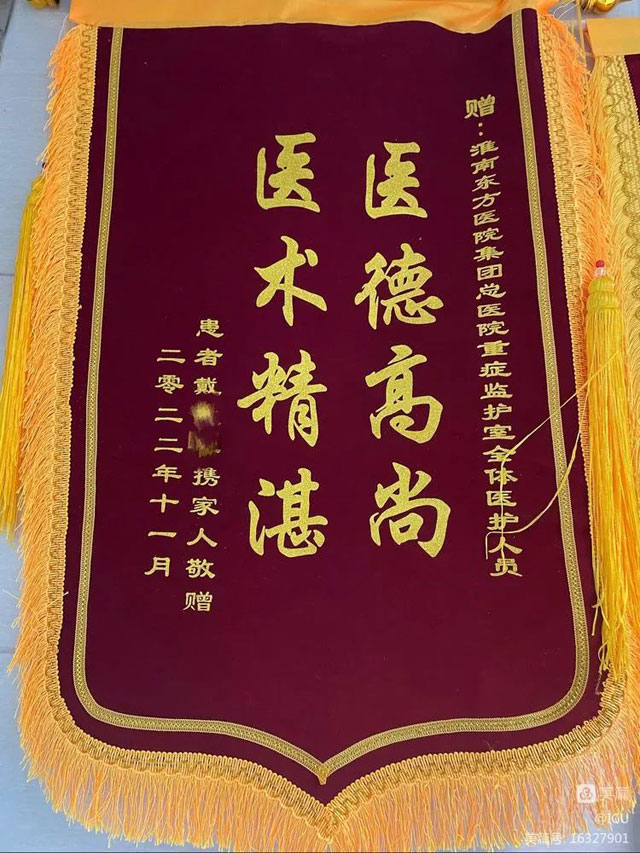 赠：淮南东方医院集团总医院重症监护室全体医护人员
医德高尚
医术精湛
患者戴携家人敬赠
二零二二年十一月
美篇
@ICU
美篇号: 16327901